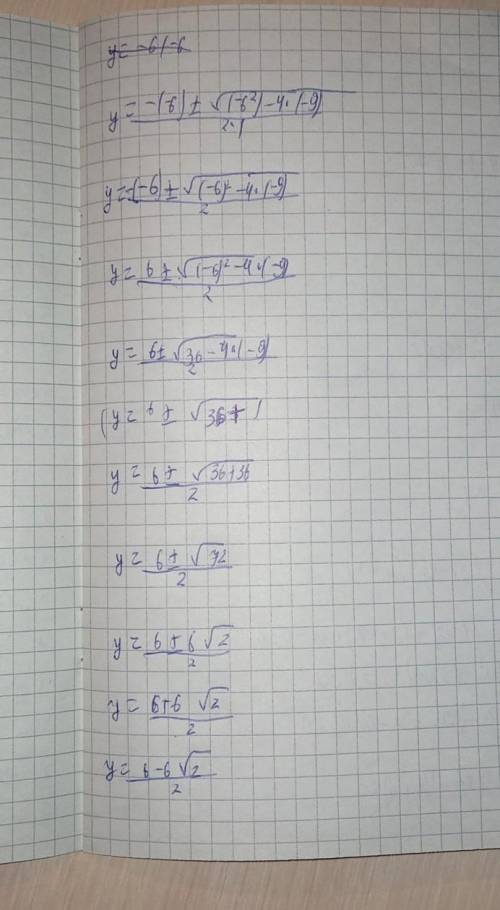 y = -(-6) ± √(-6²) - 4·(-9) / 2·1
y = -(-6) ± √(-6)² - 4·(-9) / 2
y = 6 ± √(-6)² - 4·(-9) / 2
y = 6 ± √36 - 4·(-9) / 2
(y = 6 ± √36+)
y = 6 ± √36+36 / 2
y = 6 ± √72 / 2
y = 6 ± 6√2 / 2
y = 6+6 √2 / 2
y = 6-6√2 / 2